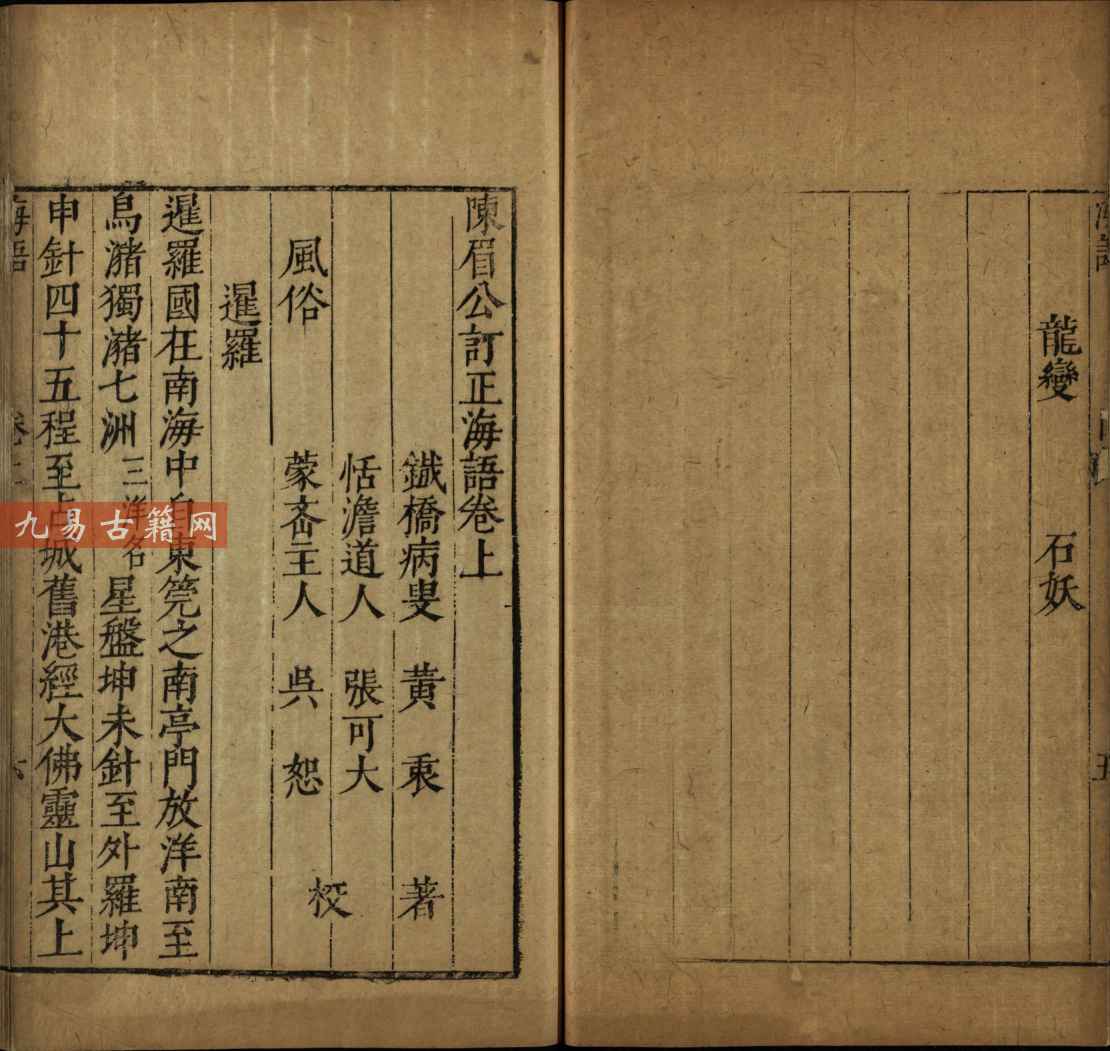 龍變　石妖
陳眉公訂正海語卷上
鐵橋病叟　黃衷　著
恬澹道人　張可大
校
風俗　蒙斎主人　吳恕
暹羅
暹羅國在南海中自東筦之南亭門放洋南至
烏瀦獨瀦七洲三洋名星盤坤未針至外羅坤
申針四十五程至占城舊港經大佛靈山其上
海語　卷上　六
九易古籍网